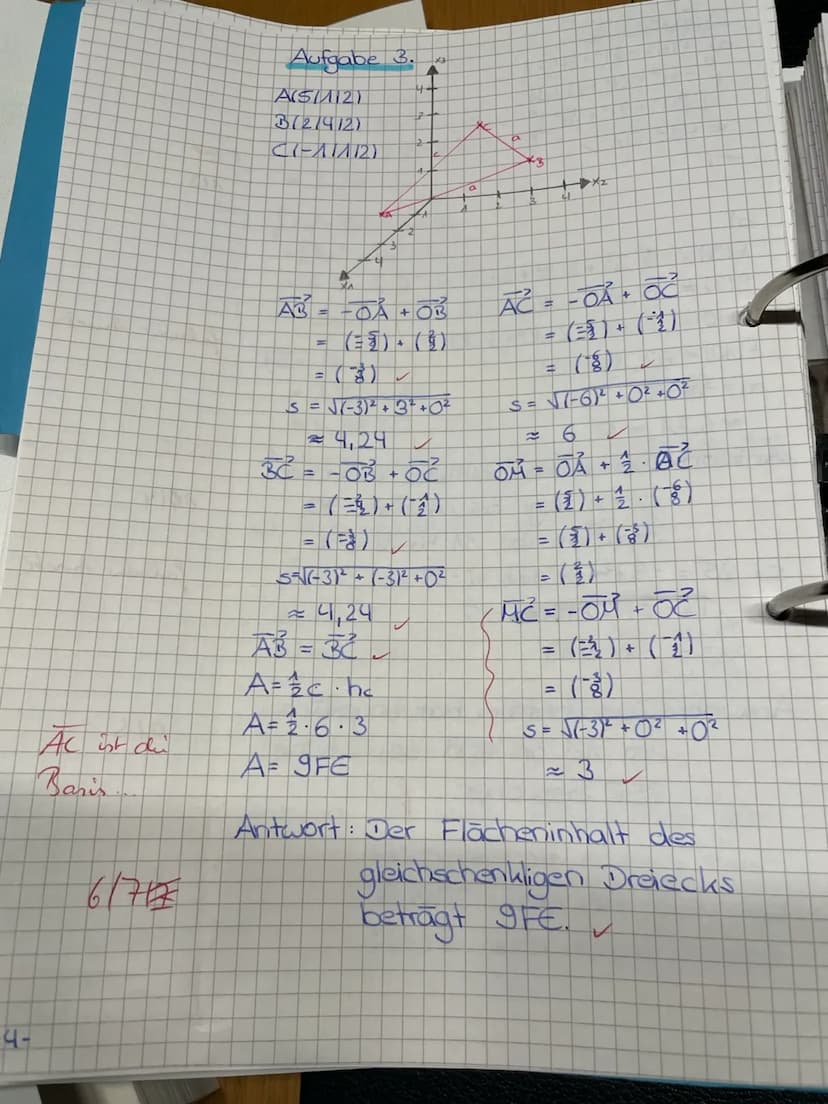 Aufgabe 3.
A(5/1/2)
B(2/4/2)
C(-1/1/2)
x3
4
3
2
1
C
a
c
B
a
A
1 2 3 4 x2
1
2
3
4
x1
AB = -OA + OB
= (-5 -1 -2) + (2 4 2)
= (-3 3 0) ✓
s = √(-3)² + 3² + 0²
≈ 4,24 ✓
BC = -OB + OC
= (-2 -4 -2) + (-1 1 2)
= (-3 -3 0) ✓
s=√(-3)² + (-3)² + 0²
≈ 4,24 ✓
AB = BC ✓
A = ½ c · hc
A = ½ · 6 · 3
A = 9FE
AC = -OA + OC
= (-5 -1 -2) + (-1 1 2)
= (-6 0 0) ✓
s = √(-6)² + 0² + 0²
≈ 6 ✓
OM = OA + ½ · AC
= (5 1 2) + ½ · (-6 0 0)
= (5 1 2) + (-3 0 0)
= (2 1 2)
MC = -OM + OC
= (-2 -1 -2) + (-1 1 2)
= (-3 0 0)
s = √(-3)² + 0² + 0²
≈ 3 ✓
AC ist die
Basis...
Antwort: Der Flächeninhalt des
gleichschenkligen Dreiecks
beträgt 9FE. ✓
6/7
4-